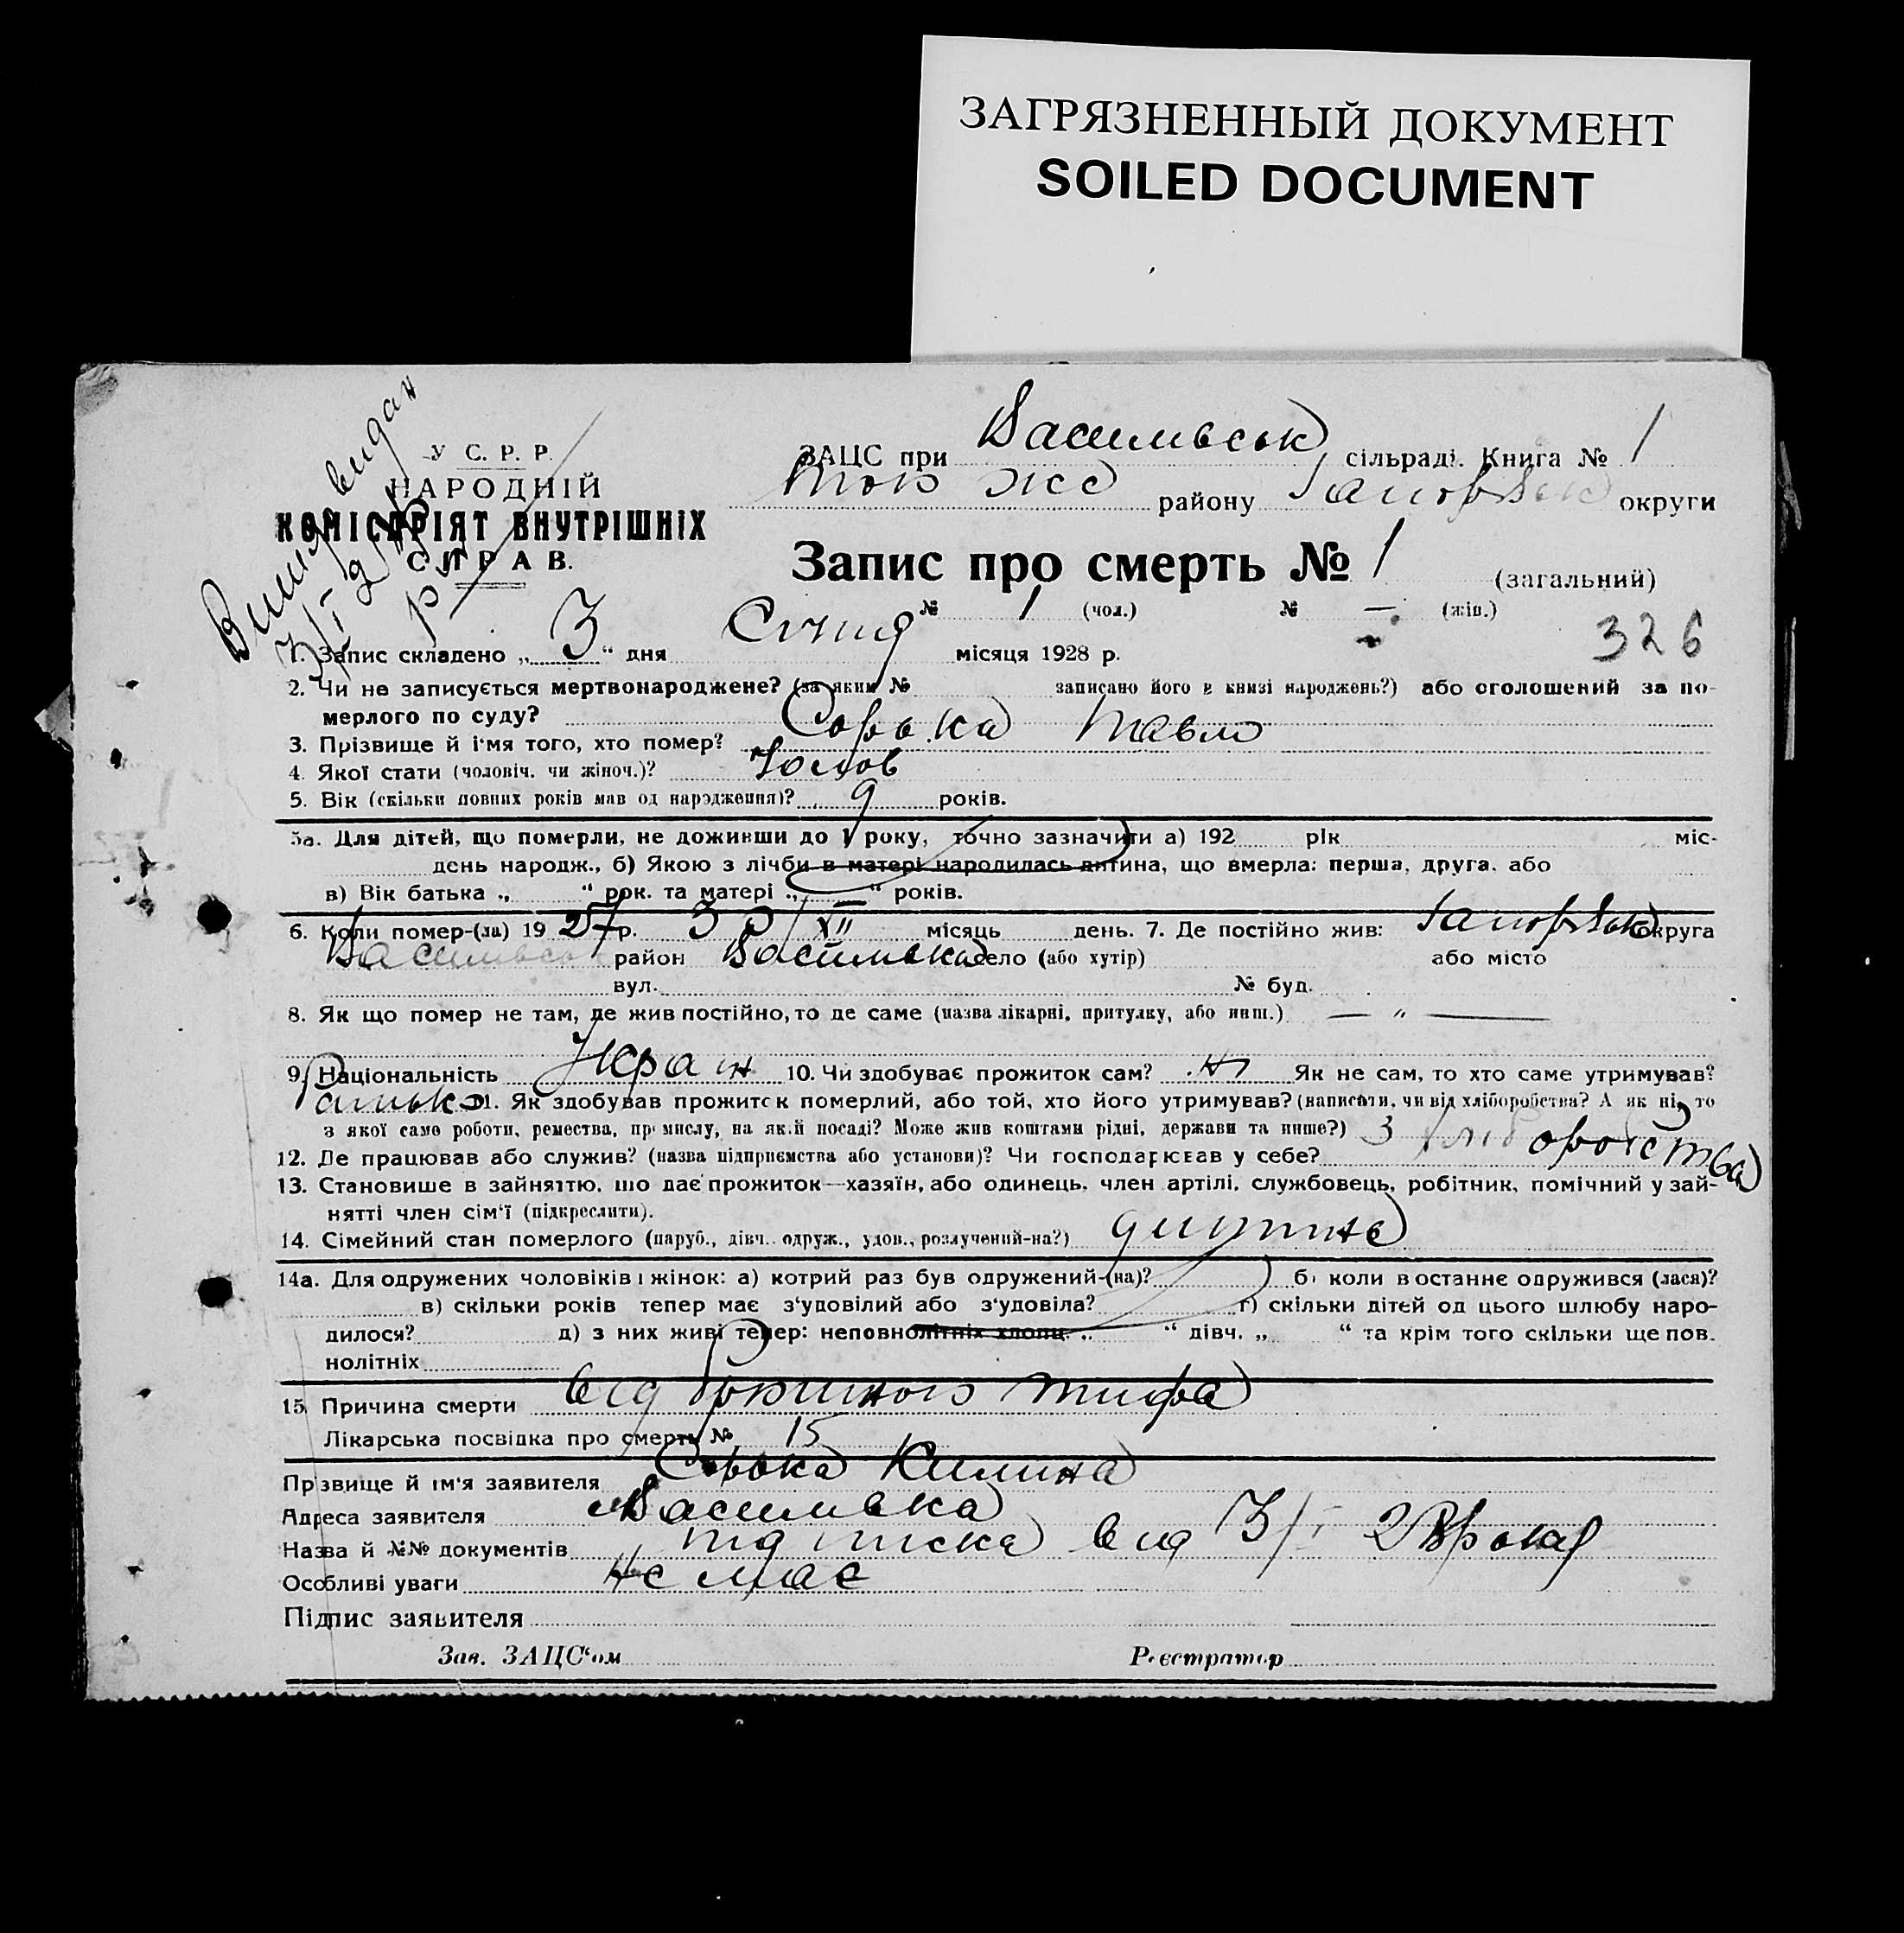 ЗАГРЯЗНЕННЫЙ ДОКУМЕНТ
SOILED DOCUMENT
Випис видан
3/I 28 р
У С. Р. Р.
НАРОДНІЙ
КОМІСАРІЯТ ВНУТРІШНІХ
СПРАВ.
ЗАЦС при Васильвськ сільраді. Книга № 1
того же району Запорізьк округи
Запис про смерть № 1 (загальний)
№ 1 (чол.) № — (жін.)
326
1. Запис складено „ 3 “ дня Січня місяця 1928 р.
2. Чи не записується мертвонароджене? (за яким № записано його в книзі народжень?) або оголошений за по-
мерлого по суду?
3. Прізвище й і'мя того, хто помер? Сорока Павло
4. Якої стати (чоловіч. чи жіноч.)? Чолов
5. Вік (скільки повних років мав од народження)? 9 років.
5а. Для дітей, що померли, не доживши до 1 року, точно зазначити а) 192 рік міс-
день народж., б) Якою з лічби в матері народилась дитина, що вмерла: перша, друга, або
в) Вік батька „ “ рок. та матері „ “ років.
6. Коли помер-(ла) 1927 р. 30/XII місяць день. 7. Де постійно жив: Запорізьк округа
Васильвськ район Васильвка село (або хутір) або місто
вул. № буд.
8. Як що помер не там, де жив постійно, то де саме (назва лікарні, притулку, або инш.) — „ —
9. Національність Україн 10. Чи здобуває прожиток сам? ні Як не сам, то хто саме утримував?
Батько 11. Як здобував прожиток померлий, або той, хто його утримував? (написати, чи від хліборобства? А як ні, то
з якої само роботи, ремества, промислу, на якій посаді? Може жив коштами рідні, держави та инше?) З хліборобства
12. Де працював або служив? (назва підприємства або установи)? Чи господарював у себе?
13. Становище в зайняттю, що дає прожиток—хазяїн, або одинець, член артілі, службовець, робітник, помічний у зай-
нятті член сім'ї (підкреслити).
14. Сімейний стан померлого (паруб., дівч. одруж., удов., розлучений-на?) дитина
14а. Для одружених чоловіків і жінок: а) котрий раз був одружений-(на)? б) коли востаннє одружився (лася)?
в) скільки років тепер має з'удовілий або з'удовіла? г) скільки дітей од цього шлюбу наро-
дилося? д) з них живі тепер: неповнолітніх хлопц. „ “ дівч. „ “ та крім того скільки ще пов.
нолітніх
15. Причина смерти від брюшного тифа
Лікарська посвідка про смерть № 15
Прізвище й ім'я заявителя Сорока Килина
Адреса заявителя Васильвка
Назва й №№ документів підписка від 3/I 28 року
Особливі уваги Не має
Підпис заявителя
Зав. ЗАЦС'ом Реєстратор